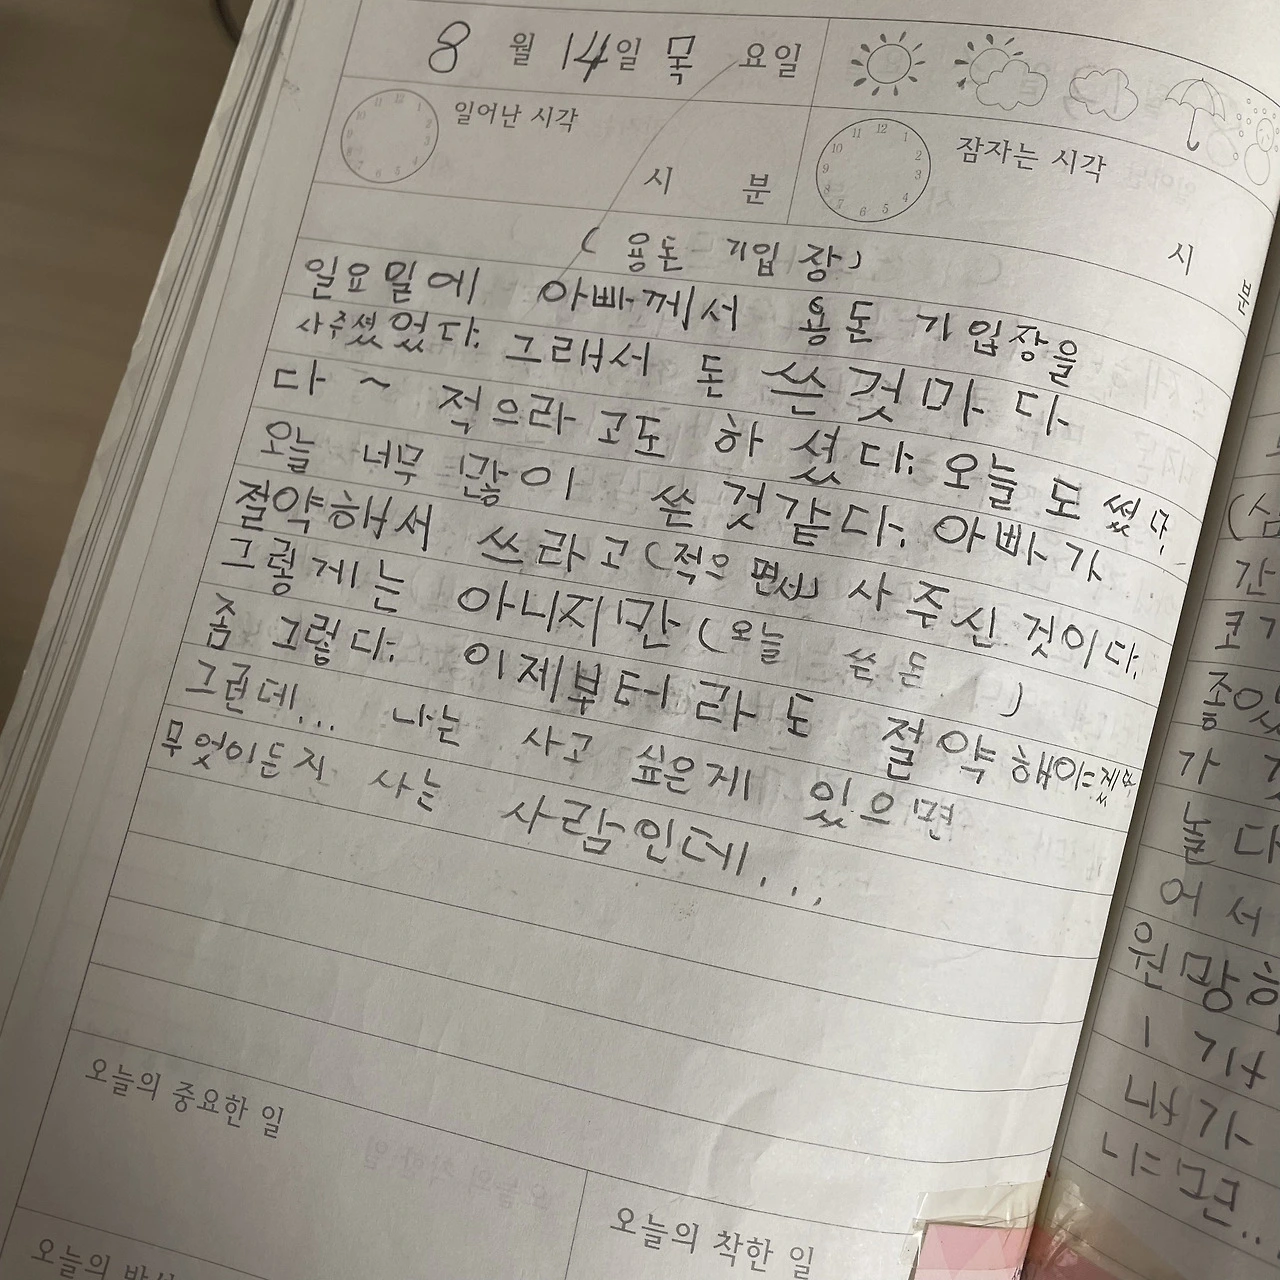 8 월 14일 목 요일
일어난 시각
시 분
잠자는 시각
시 분
( 용돈 기입 장)
일요일에 아빠께서 용돈 기입장을
사주셨었다. 그래서 돈 쓴것마다
다 ~ 적으라고도 하셨다. 오늘도 썼다.
오늘 너무 많이 쓴 것같다. 아빠가
절약해서 쓰라고(적으면서) 사주신 것이다.
그렇게는 아니지만(오늘 쓴 돈 )
좀 그렇다. 이제부터라도 절약해야겠다
그런데... 나는 사고 싶은게 있으면
무엇이든지 사는 사람인데...
오늘의 중요한 일
오늘의 착한 일
오늘의
간
좋았
가
놀다
어서
원망하
내가